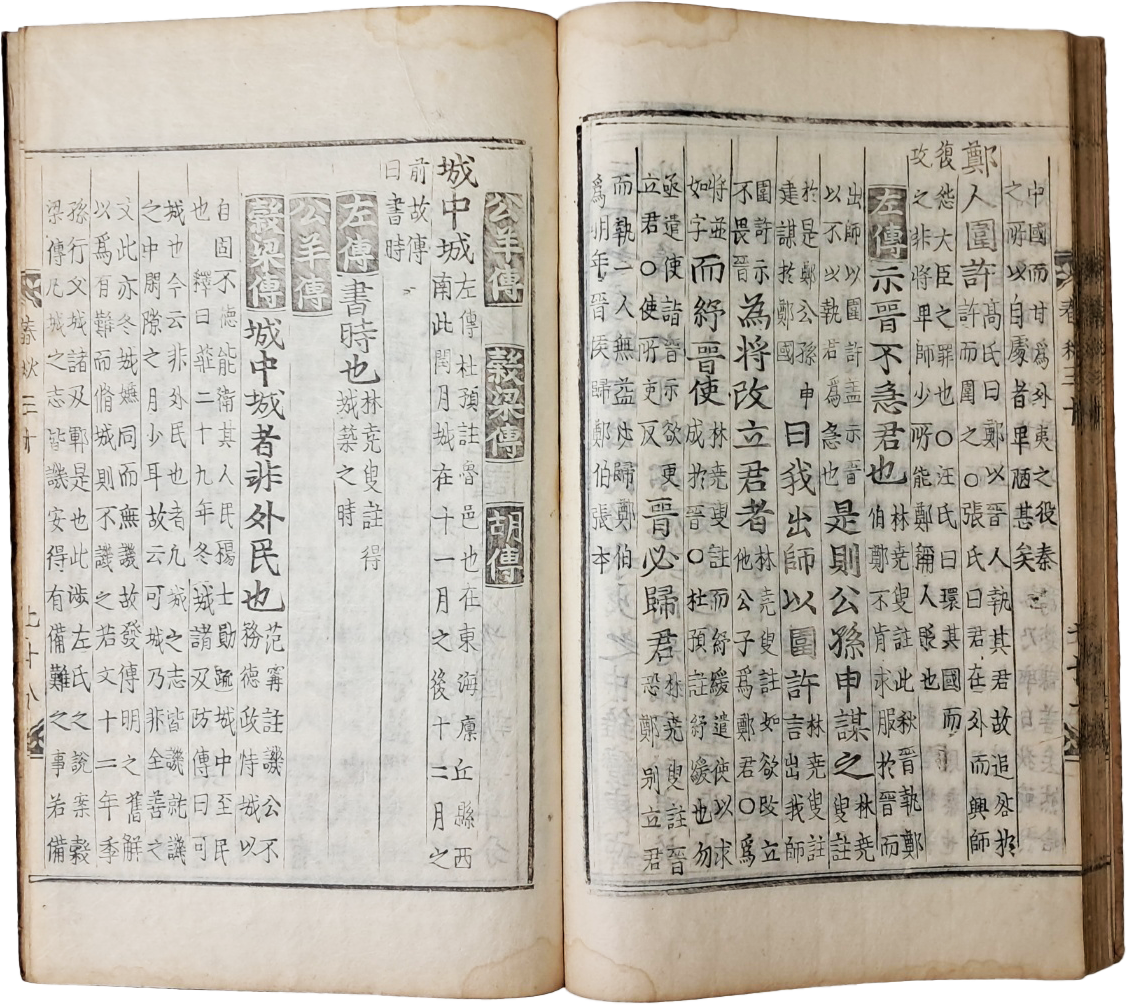 中國而甘爲外夷之役秦
之所以自處者卑陋甚矣
鄭人圍許 高氏曰鄭以晉人執其君故追咎於
許而圍之○張氏曰君在外而興師
復怨大臣之罪也○汪氏曰環其國而
攻之非將卑師少所能鄭稱人貶也
左傳 示晉不急君也 林堯叟註此秋晉執鄭
伯鄭不肯求服於晉而
出師以圍許盖示晉
以不以執君爲急也 是則公孫申謀之 林堯
叟註
於是鄭公孫申
建謀於鄭國 曰我出師以圍許 林堯叟註
言出我師
圍許示
不畏晉 爲將改立君者 林堯叟註如欲改立
他公子爲鄭君○爲
將並
如字 而紓晉使 林堯叟註而紓緩遣使以求
成於晉○杜預註紓緩也勿
亟遣使詣晉示欲更
立君○使所吏反 晉必歸君 林堯叟註晉
恐鄭別立君
而執一人無益必歸鄭伯
爲明年晉侯歸鄭伯張本
公羊傳 穀梁傳 胡傳
城中城 左傳杜預註魯邑也在東海廩丘縣西
南此閏月城在十一月之後十二月之
前故傳
曰書時
左傳 書時也 林堯叟註得
城築之時
公羊傳
穀梁傳 城中城者非外民也 范甯註譏公不
務德政特城以
自固不德能衛其人民楊士勛䟽城中至民
也釋曰莊二十九年冬城諸及防傳曰可
城也今云非外民也者凡城之志皆譏就譏
之中閒隙之月少耳故云可城乃非全善之
文此亦冬城嫌同而無譏故發傳明之舊解
以爲有難而脩城則不譏之若文十二年季
孫行父城諸及鄆是也此涉左氏之說案穀
梁傳凡城之志皆譏安得有備難之事若備
春秋三十 七十八